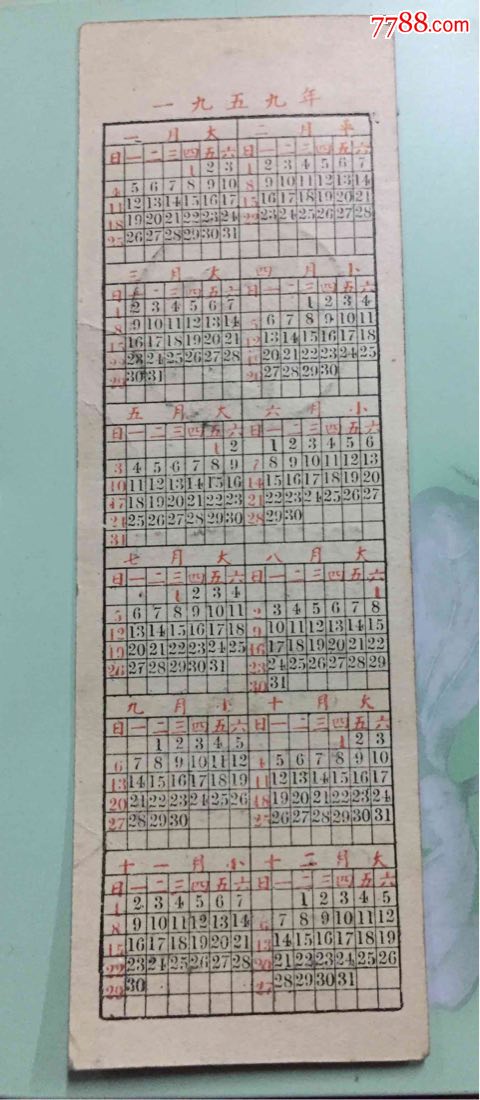 7788.com
一九五九年
一月大 二月平
日一二三四五六 日一二三四五六
1 2 3 1 2 3 4 5 6 7
4 5 6 7 8 9 10 8 9 10 11 12 13 14
11 12 13 14 15 16 17 15 16 17 18 19 20 21
18 19 20 21 22 23 24 22 23 24 25 26 27 28
25 26 27 28 29 30 31
三月大 四月小
日一二三四五六 日一二三四五六
1 2 3 4 5 6 7 1 2 3 4
8 9 10 11 12 13 14 5 6 7 8 9 10 11
15 16 17 18 19 20 21 12 13 14 15 16 17 18
22 23 24 25 26 27 28 19 20 21 22 23 24 25
29 30 31 26 27 28 29 30
五月大 六月小
日一二三四五六 日一二三四五六
1 2 1 2 3 4 5 6
3 4 5 6 7 8 9 7 8 9 10 11 12 13
10 11 12 13 14 15 16 14 15 16 17 18 19 20
17 18 19 20 21 22 23 21 22 23 24 25 26 27
24 25 26 27 28 29 30 28 29 30
31
七月大 八月大
日一二三四五六 日一二三四五六
1 2 3 4 1
5 6 7 8 9 10 11 2 3 4 5 6 7 8
12 13 14 15 16 17 18 9 10 11 12 13 14 15
19 20 21 22 23 24 25 16 17 18 19 20 21 22
26 27 28 29 30 31 23 24 25 26 27 28 29
30 31
九月小 十月大
日一二三四五六 日一二三四五六
1 2 3 4 5 1 2 3
6 7 8 9 10 11 12 4 5 6 7 8 9 10
13 14 15 16 17 18 19 11 12 13 14 15 16 17
20 21 22 23 24 25 26 18 19 20 21 22 23 24
27 28 29 30 25 26 27 28 29 30 31
十一月小 十二月大
日一二三四五六 日一二三四五六
1 2 3 4 5 6 7 1 2 3 4 5
8 9 10 11 12 13 14 6 7 8 9 10 11 12
15 16 17 18 19 20 21 13 14 15 16 17 18 19
22 23 24 25 26 27 28 20 21 22 23 24 25 26
29 30 27 28 29 30 31